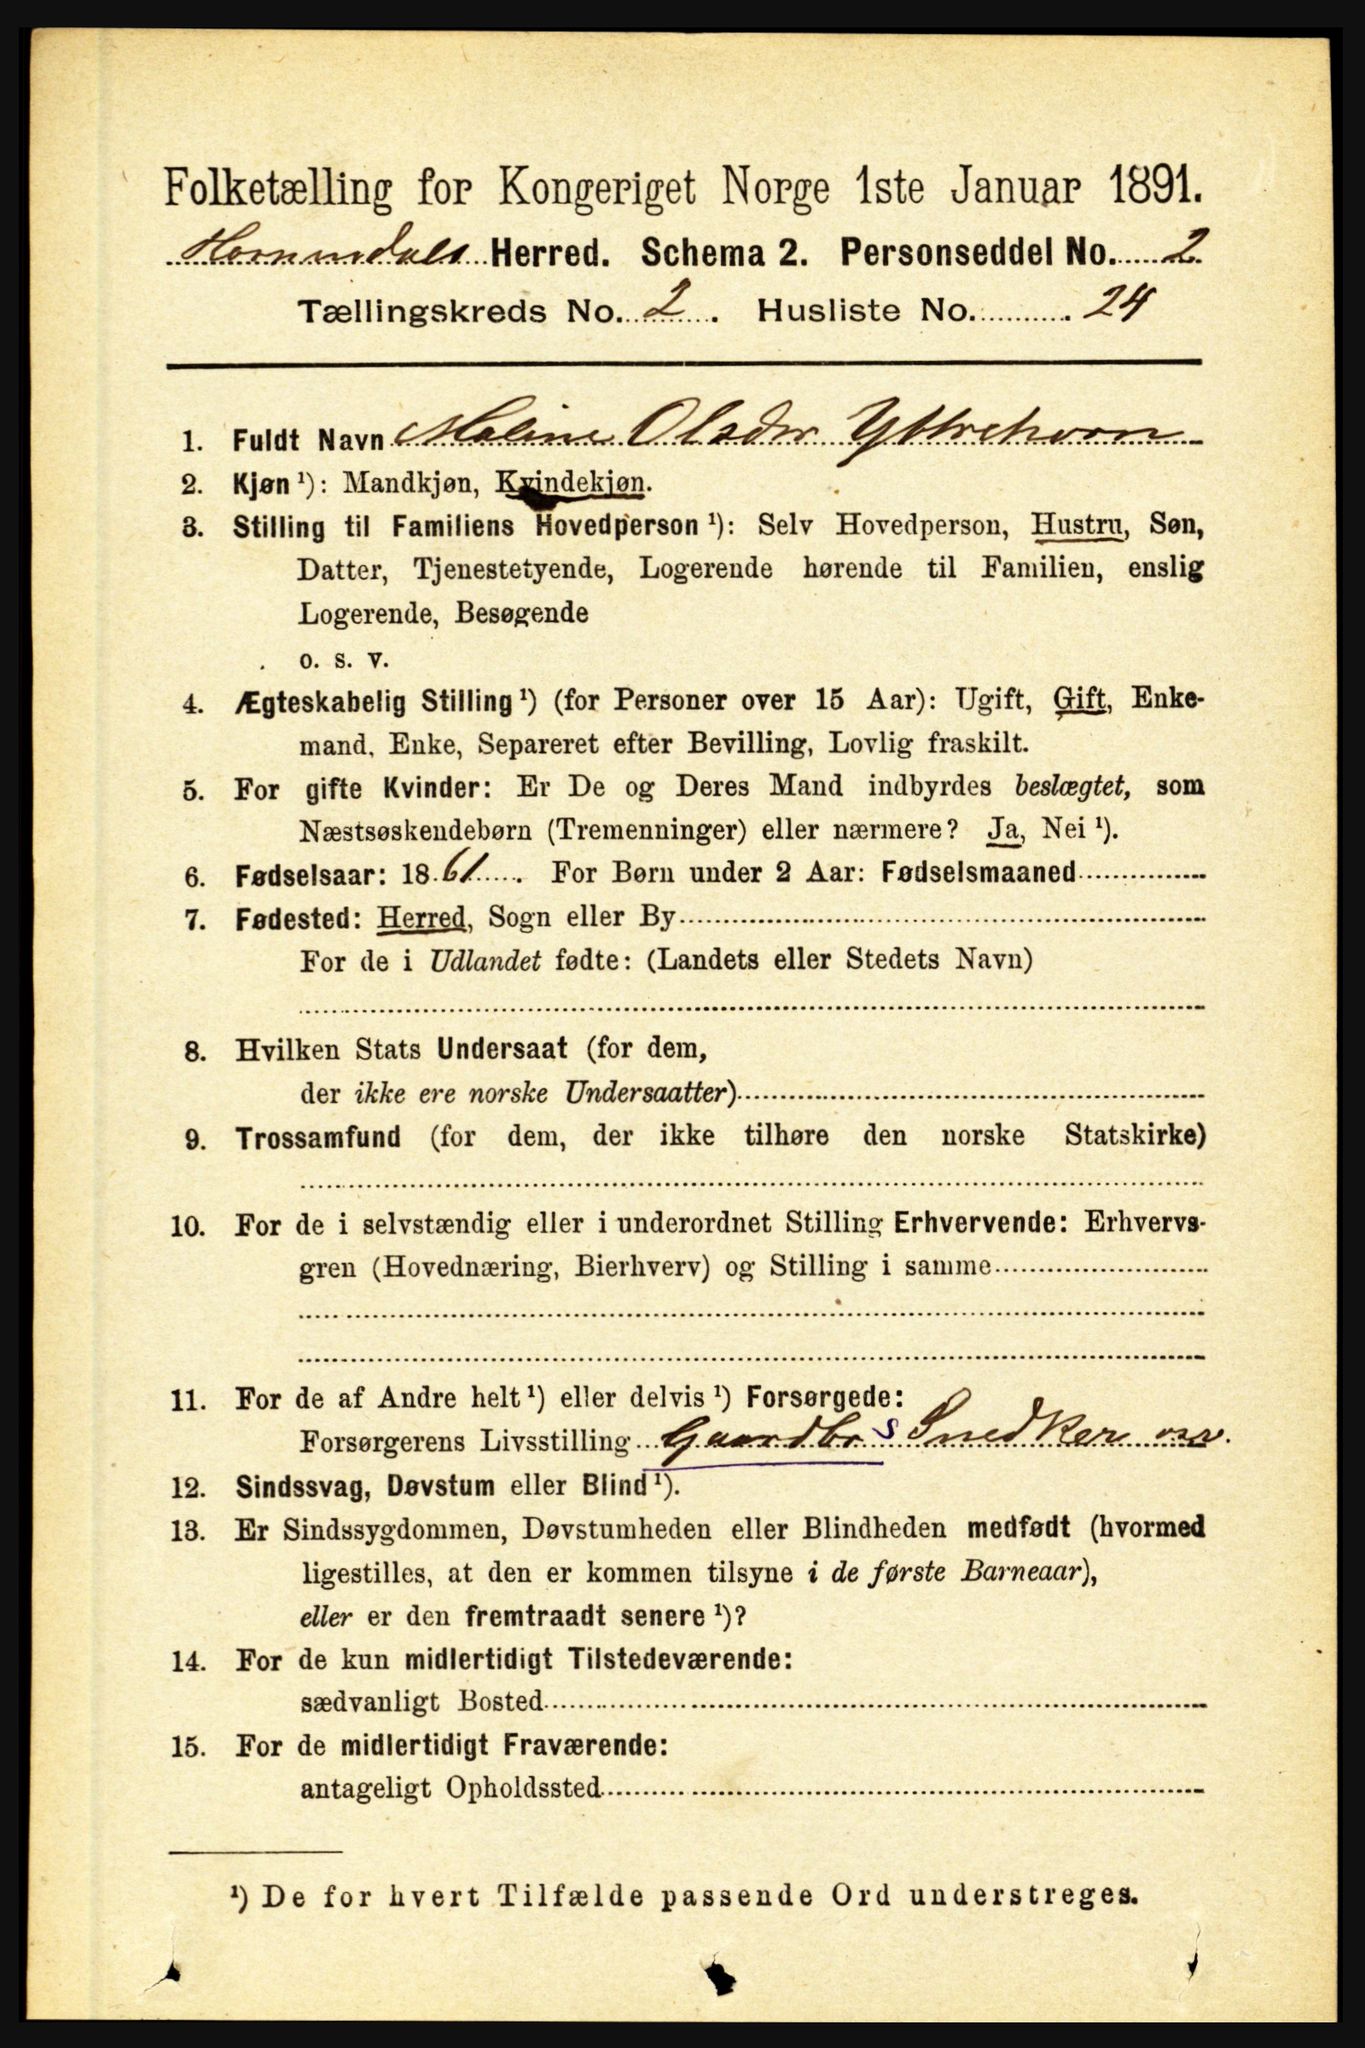 Folketælling for Kongeriget Norge 1ste Januar 1891.
Hornindals Herred. Schema 2. Personseddel No. 2
Tællingskreds No. 2. Husliste No. 24
1. Fuldt Navn Maline Olsdr Yttrehorn
2. Kjøn ¹): Mandkjøn, Kvindekjøn.
3. Stilling til Familiens Hovedperson ¹): Selv Hovedperson, Hustru, Søn,
Datter, Tjenestetyende, Logerende hørende til Familien, enslig
Logerende, Besøgende
o. s. v.
4. Ægteskabelig Stilling ¹) (for Personer over 15 Aar): Ugift, Gift, Enke-
mand, Enke, Separeret efter Bevilling, Lovlig fraskilt.
5. For gifte Kvinder: Er De og Deres Mand indbyrdes beslægtet, som
Næstsøskendebørn (Tremenninger) eller nærmere? Ja, Nei ¹).
6. Fødselsaar: 1861. For Børn under 2 Aar: Fødselsmaaned
7. Fødested: Herred, Sogn eller By
For de i Udlandet fødte: (Landets eller Stedets Navn)
8. Hvilken Stats Undersaat (for dem,
der ikke ere norske Undersaatter)
9. Trossamfund (for dem, der ikke tilhøre den norske Statskirke)
10. For de i selvstændig eller i underordnet Stilling Erhvervende: Erhvervs-
gren (Hovednæring, Bierhverv) og Stilling i samme
11. For de af Andre helt ¹) eller delvis ¹) Forsørgede:
Forsørgerens Livsstilling Gaardbr s Snedker osv.
12. Sindssvag, Døvstum eller Blind ¹).
13. Er Sindssygdommen, Døvstumheden eller Blindheden medfødt (hvormed
ligestilles, at den er kommen tilsyne i de første Barneaar),
eller er den fremtraadt senere ¹)?
14. For de kun midlertidigt Tilstedeværende:
sædvanligt Bosted
15. For de midlertidigt Fraværende:
antageligt Opholdssted
¹) De for hvert Tilfælde passende Ord understreges.